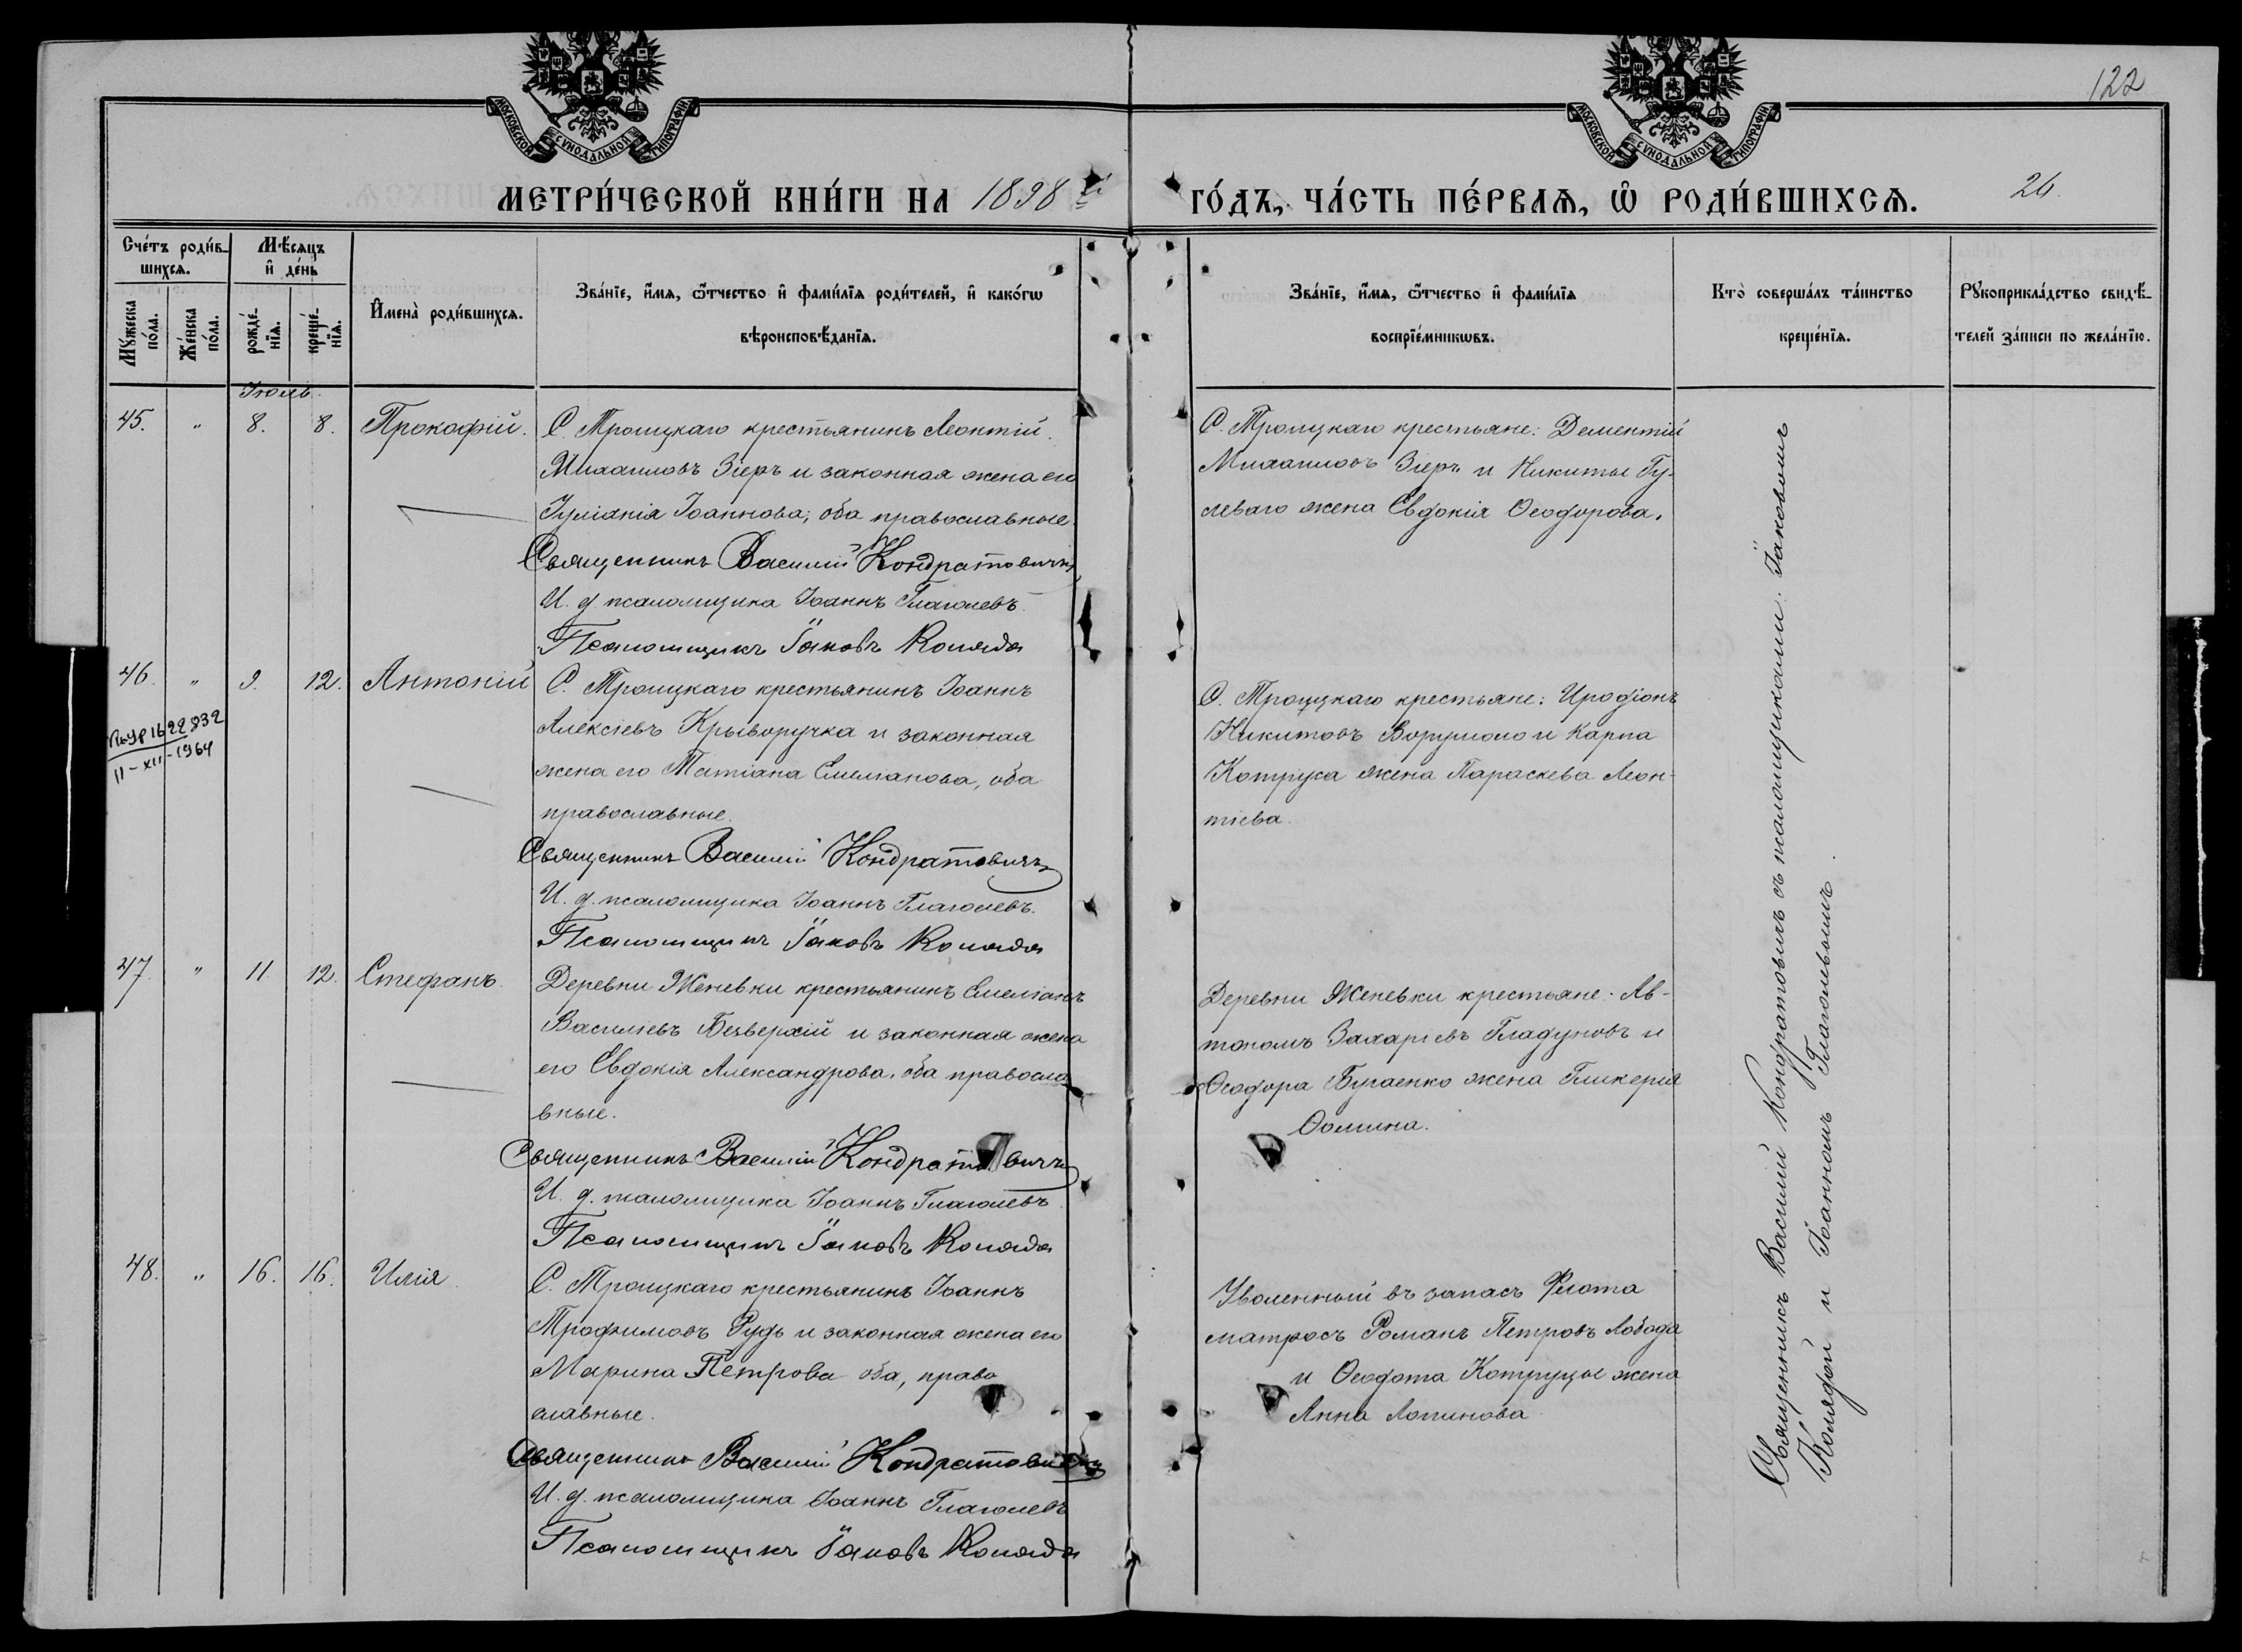 122
МОСКОВСКОЙ СѴНОДАЛЬНОЙ ТИПОГРАФІИ
МОСКОВСКОЙ СѴНОДАЛЬНОЙ ТИПОГРАФІИ
МЕТРИ́ЧЕСКОЙ КНИ́ГИ НА 1898й ГО́ДЪ, ЧА́СТЬ ПЕ́РВАѦ, Ѡ҆ РОДИ́ВШИХСѦ. 26.
Сче́тъ роди́в-
шихсѧ.
Мѣ́сѧцъ
и҆ де́нь
Мꙋ́жеска
по́ла.
Же́нска
по́ла.
рожде́-
нїѧ.
креще́-
нїѧ.
И҆мена̀ роди́вшихсѧ.
Зва́нїе, и҆́мѧ, ѻ҆́тчество и҆ фами́лїѧ роди́телей, и҆ како́гѡ
вѣроисповѣ́данїѧ.
Зва́нїе, и҆́мѧ, ѻ҆́тчество и҆ фами́лїѧ
воспрїе́мникѡвъ.
Кто̀ соверша́лъ та́инство
креще́нїѧ.
Рꙋкоприкла́дство свидѣ́-
телей за́писи по жела́нїю.
Іюль.
45. " 8. 8. Прокофій.
С. Троицкаго крестьянинъ Леонтій
Михаиловъ Зіеръ и законная жена его
Іуліанія Іоаннова, оба православные
Священникъ Василій Кондратовичъ
И. д. псаломщика Іоаннъ Глаголевъ.
Псаломщикъ Іаковъ Коляда
С. Троицкаго крестьяне: Дементій
Михаиловъ Зіеръ и Никиты Гу-
севаго жена Евдокія Ѳеодорова.
46. " 9. 12. Антоній
II-XII-1964
С. Троицкаго крестьянинъ Іоаннъ
Алексіевъ Крыворучка и законная
жена его Татіана Емеліанова, оба
православные.
Священникъ Василій Кондратовичъ
И. д. псаломщика Іоаннъ Глаголевъ.
Псаломщикъ Іаковъ Коляда
С. Троицкаго крестьяне: Иродіонъ
Никитовъ Ворушило и Карпа
Котруса жена Параскева Леон-
тіева.
47. " 11. 12. Стефанъ.
Деревни Женевки крестьянинъ Емеліанъ
Василіевъ Безверхій и законная жена
его Евдокія Александрова, оба правосла
вные.
Священникъ Василій Кондратовичъ
И. д. псаломщика Іоаннъ Глаголевъ
Псаломщикъ Іаковъ Коляда
Деревни Женевки крестьяне: Ав-
тономъ Захаріевъ Гладуновъ и
Ѳеодора Бугаенко жена Гликерія
Ѳомина.
48. " 16. 16. Илія
С. Троицкаго крестьянинъ Іоаннъ
Трофимовъ Рудь и законная жена его
Марина Петрова оба, право
славные.
Священникъ Василій Кондратовичъ
И. д. псаломщика Іоаннъ Глаголевъ
Псаломщикъ Іаковъ Коляда
Уволенный въ запасъ Флота
матросъ Романъ Петровъ Лобода
и Ѳеодота Котруцы жена
Анна Логинова
Священникъ Василій Кондратовичъ съ псаломщиками: Іаковомъ
Колядой и Іоанномъ Глаголевымъ.